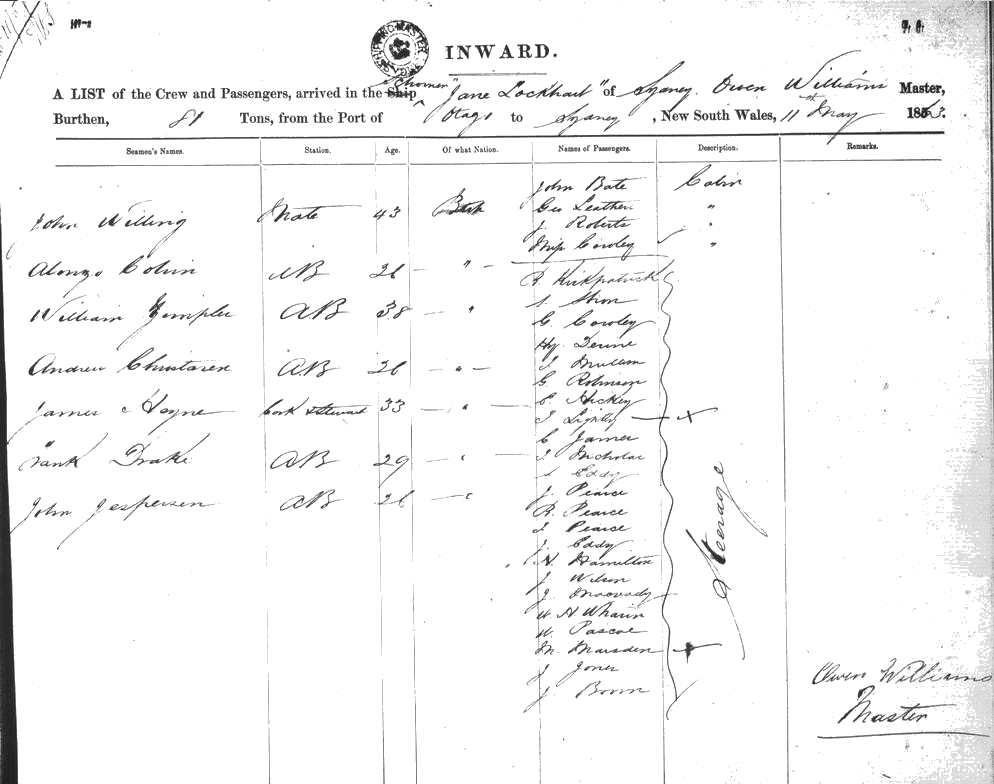 INWARD.
A LIST of the Crew and Passengers, arrived in the Ship "Jane Lockhart" of Sydney, Owen Williams Master,
Burthen, 81 Tons, from the Port of Otago to Sydney, New South Wales, 11th May 1863.
Seamen's Names. Station. Age. Of what Nation. Names of Passengers. Description. Remarks.
John Bate Cabin
John Willing Mate 43 Geo Leather "
J. Roberts "
Miss Cowley "
Alonzo Colvin AB 26 — " —
R. Kirkpatrick
William 38 AB — "
G. Cowley
Hy.
Andrew Christaren AB 26 — " —
G Robinson
James Hayne Cook & Steward 33 — " — Hickey
J Lightly — x
C James
Frank Drake AB 29 — " — J. Nicholas
Eddy
John Jespersen AB 26 — " J. Pearce
R. Pearce
J. Pearce
J. Eddy
H. Hamilton
J. Wilson
Steerage
W A Wharin
W. Pascoe
M. Marsden — x
J Jones
J
Owen Williams
Master